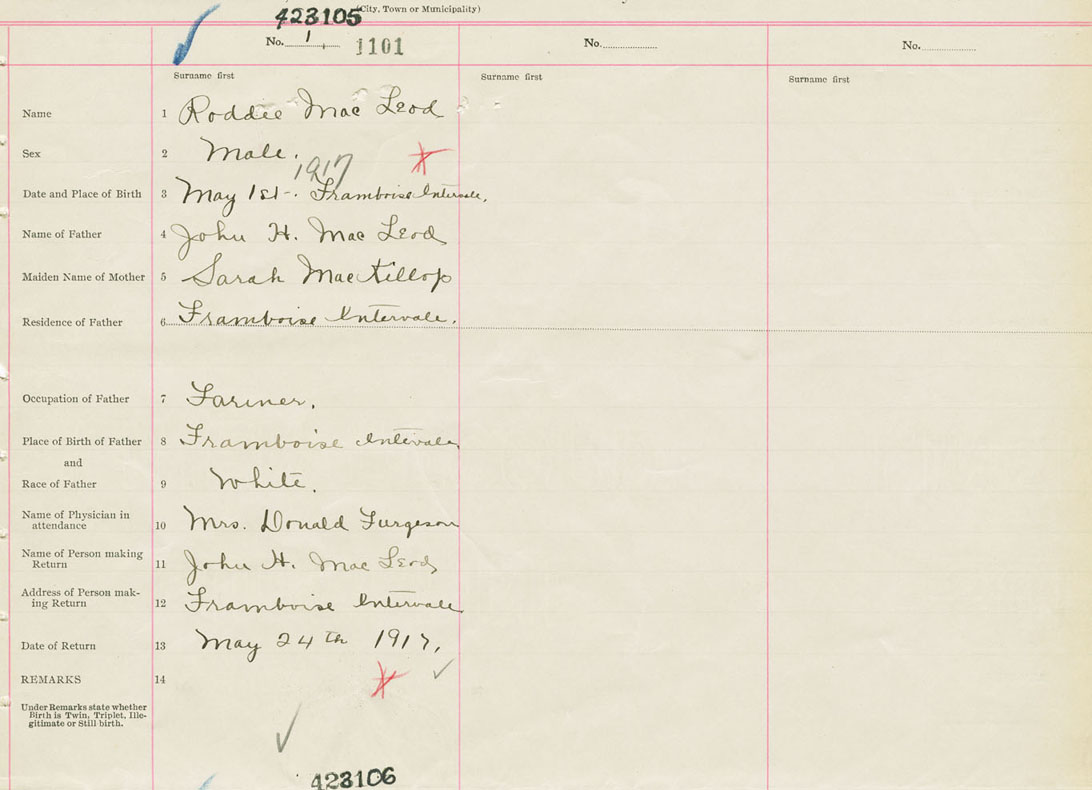 (City, Town or Municipality)
423105
No. 1, 1101
No.
No.
Surname first
Surname first
Surname first
Name 1 Roddie Mac Leod
Sex 2 Male.
1917
Date and Place of Birth 3 May 1st. Framboise Intervale,
Name of Father 4 John H. Mac Leod
Maiden Name of Mother 5 Sarah MacKillop
Residence of Father 6 Framboise Intervale.
Occupation of Father 7 Farmer.
Place of Birth of Father 8 Framboise Intervale
and
Race of Father 9 White.
Name of Physician in
attendance 10 Mrs. Donald Furgeson
Name of Person making
Return 11 John H. Mac Leod
Address of Person mak-
ing Return 12 Framboise Intervale
Date of Return 13 May 24th 1917,
REMARKS 14
Under Remarks state whether
Birth is Twin, Triplet, Ille-
gitimate or Still birth.
423106